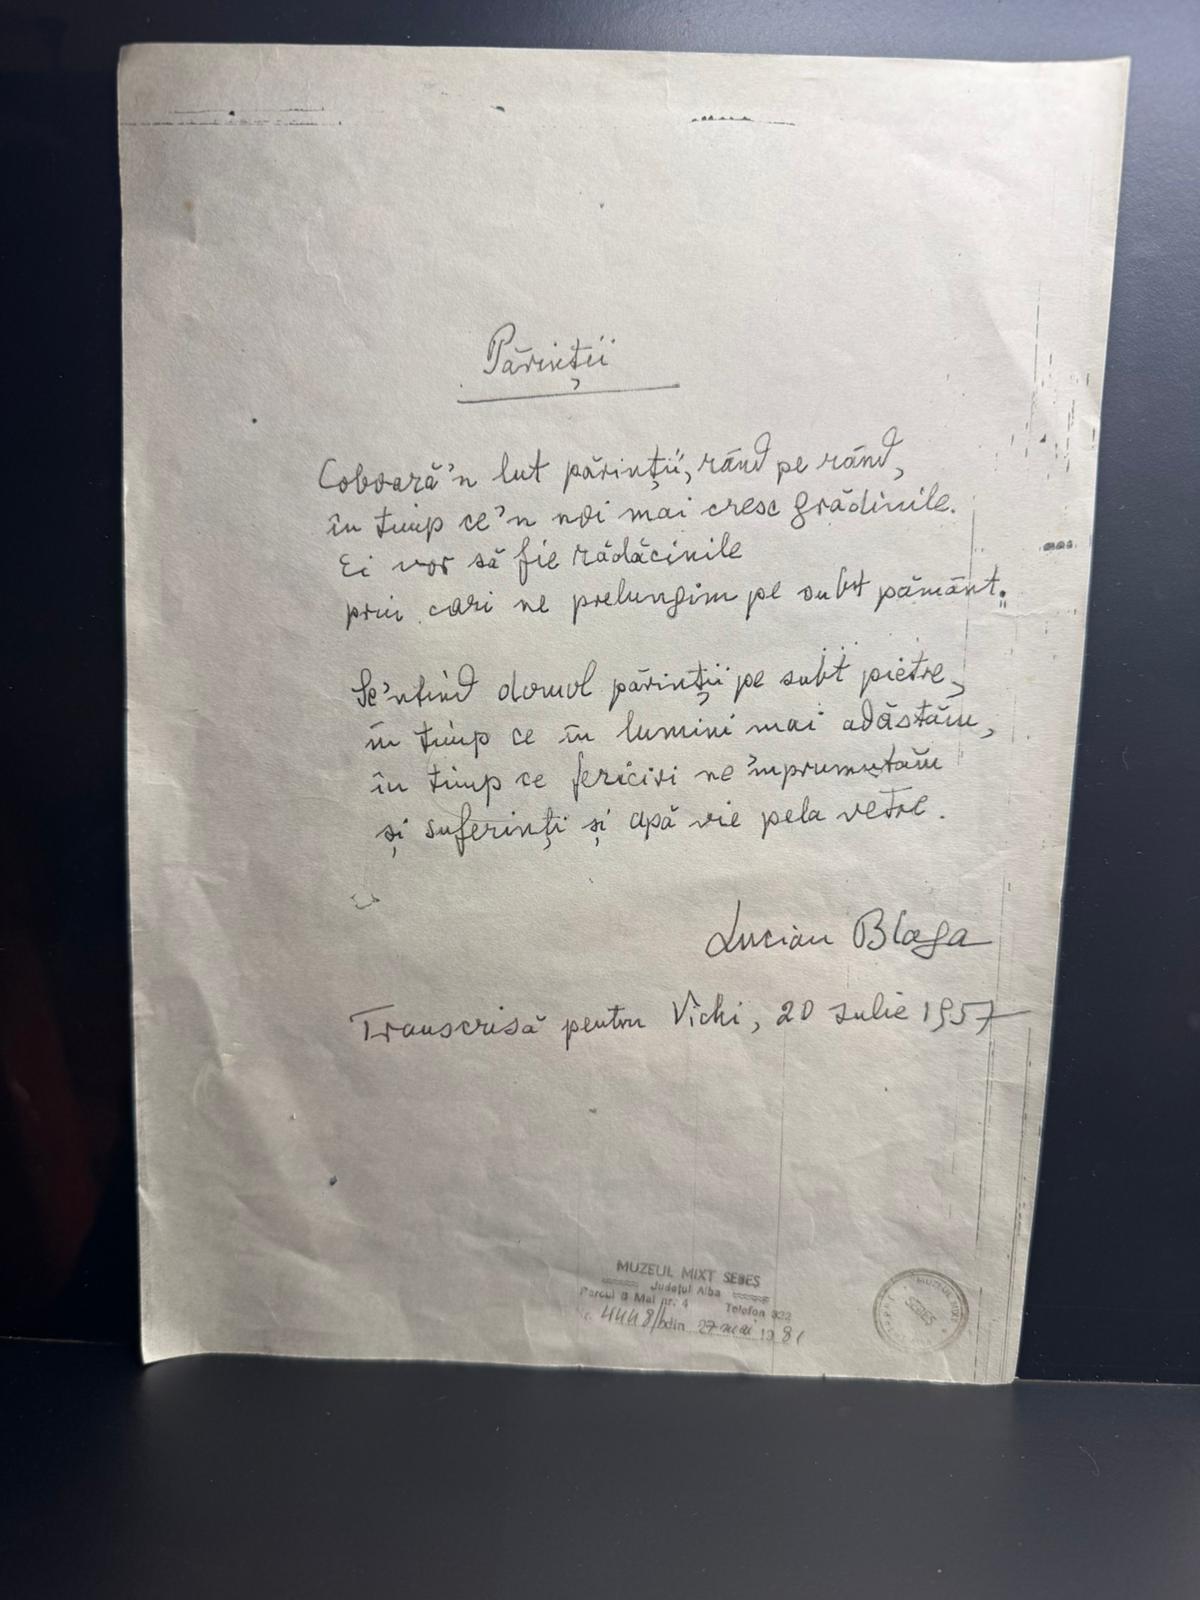 Părinții
Coboară'n lut părinții, rând pe rând,
în timp ce'n noi mai cresc grădinile.
Ei vor să fie rădăcinile
prin cari ne prelungim pe subt pământ.
Se'ntind domol părinții pe subt pietre,
în timp ce în lumini mai adăstăm,
în timp ce fericiri ne'mprumutăm
și suferinți și apă vie pela vetre.
Lucian Blaga
Transcrisă pentru Vichi, 20 Iulie 1957
MUZEUL MIXT SEBEȘ
Județul Alba
Parcul 8 Mai nr. 4 Telefon
din 27 mai 1981
MUZEUL MIXT
SEBEȘ